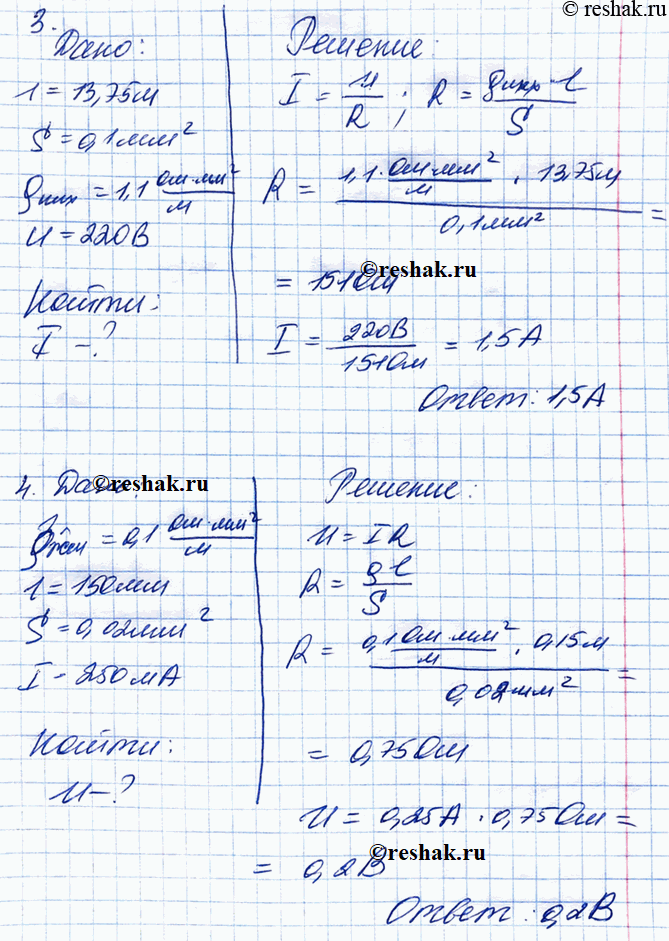 © reshak.ru
3.
Дано:
l = 13,75м
S = 0,1мм²
ρних = 1,1 Ом·мм²/м
U = 220В
Найти:
I - ?
Решение:
I = U/R ; R = ρних · l/S
R = 1,1 · Ом·мм²/м · 13,75м / 0,1мм² =
©reshak.ru
= 151Ом
I = 220В/151Ом = 1,5А
Ответ: 1,5А
4. Дано:
©reshak.ru
ρжел = 0,1 Ом·мм²/м
l = 150мм
S = 0,02мм²
I - 250мА
Найти:
U - ?
Решение:
U = IR
R = ρl/S
R = 0,1 Ом·мм²/м · 0,15м / 0,02мм² =
= 0,75Ом
U = 0,25А · 0,75Ом =
= 0,2В
©reshak.ru
Ответ: 0,2В